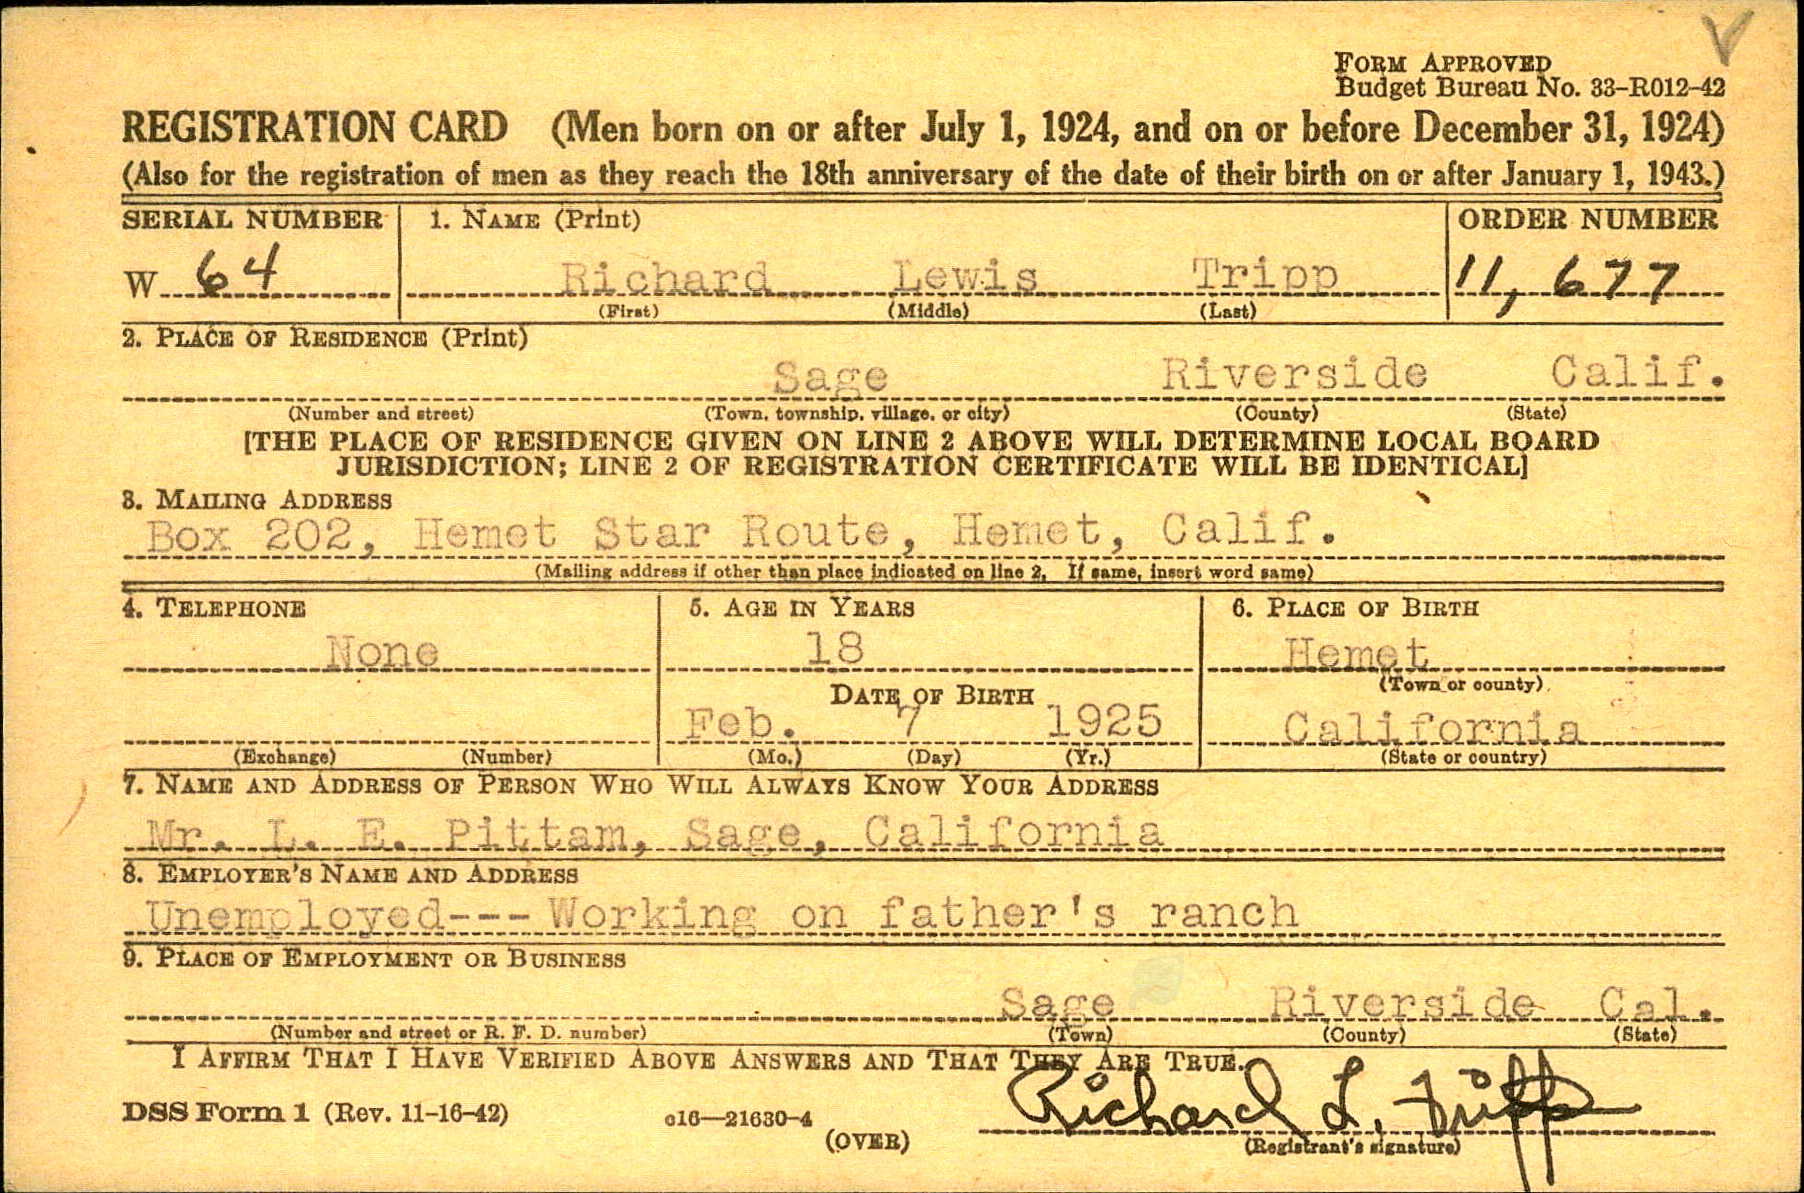 FORM APPROVED
Budget Bureau No. 33-R012-42
REGISTRATION CARD (Men born on or after July 1, 1924, and on or before December 31, 1924)
(Also for the registration of men as they reach the 18th anniversary of the date of their birth on or after January 1, 1943.)
SERIAL NUMBER 1. NAME (Print) ORDER NUMBER
W 64 Richard Lewis Tripp 11,677
(First) (Middle) (Last)
2. PLACE OF RESIDENCE (Print)
Sage Riverside Calif.
(Number and street) (Town, township, village, or city) (County) (State)
[THE PLACE OF RESIDENCE GIVEN ON LINE 2 ABOVE WILL DETERMINE LOCAL BOARD
JURISDICTION; LINE 2 OF REGISTRATION CERTIFICATE WILL BE IDENTICAL]
3. MAILING ADDRESS
Box 202, Hemet Star Route, Hemet, Calif.
(Mailing address if other than place indicated on line 2. If same, insert word same)
4. TELEPHONE 5. AGE IN YEARS 6. PLACE OF BIRTH
None 18 Hemet
(Town or county)
DATE OF BIRTH
Feb. 7 1925 California
(Exchange) (Number) (Mo.) (Day) (Yr.) (State or country)
7. NAME AND ADDRESS OF PERSON WHO WILL ALWAYS KNOW YOUR ADDRESS
Mr. L. E. Pittam, Sage, California
8. EMPLOYER'S NAME AND ADDRESS
Unemployed---Working on father's ranch
9. PLACE OF EMPLOYMENT OR BUSINESS
Sage Riverside Cal.
(Number and street or R. F. D. number) (Town) (County) (State)
I AFFIRM THAT I HAVE VERIFIED ABOVE ANSWERS AND THAT THEY ARE TRUE.
Richard L. Tripp
DSS Form 1 (Rev. 11-16-42) c16—21630-4
(OVER) (Registrant's signature)